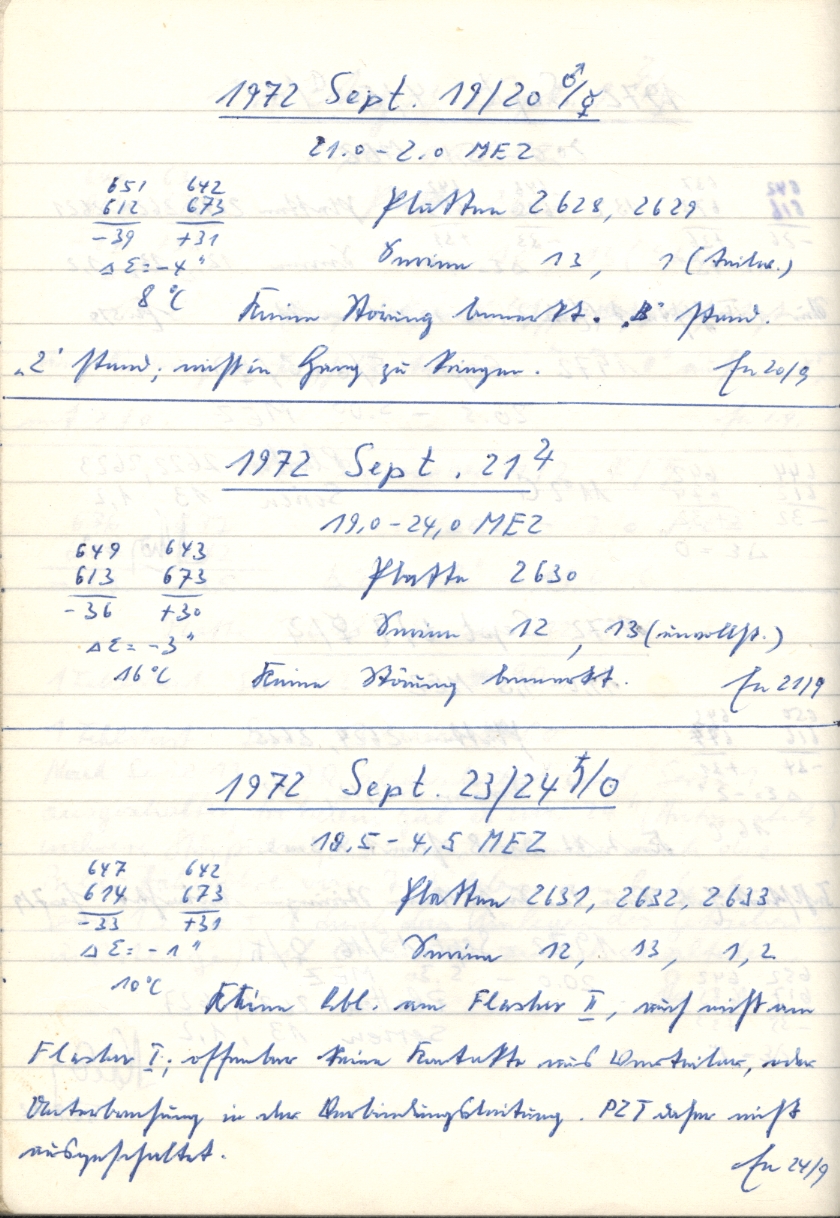 1972 Sept. 19/20 ♂/☿
21.0 – 2.0 MEZ
651 642
612 673
-39 +31
Platten 2628, 2629
ΔΣ = -4"
Serien 13, 1 (teilw.)
8°C
Keine Störung bemerkt. „B" stand.
„2" stand; nicht in Gang zu bringen. En 20/9
1972 Sept. 21 ♃
19,0 – 24,0 MEZ
649 643
613 673
-36 +30
Platte 2630
ΔΣ = -3"
Serien 12, 13 (unvollst.)
16°C
Keine Störung bemerkt. En 21/9
1972 Sept. 23/24 ♄/⊙
18.5 – 4,5 MEZ
647 642
614 673
-33 +31
Platten 2631, 2632, 2633
ΔΣ = -1"
Serien 12, 13, 1, 2
10°C
Keine bbl. am Flasher II, auch nicht am
Flasher I; offenbar keine Kontakte aus Verteiler, oder
Unterbrechung in der Verbindungsleitung. PZT daher nicht
ausgeschaltet.
En 24/9